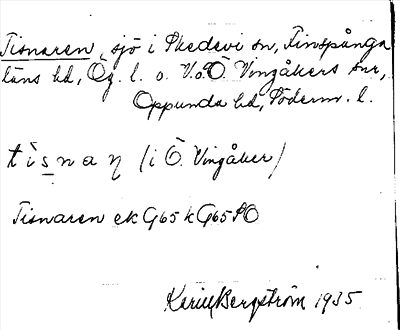 Tisnaren, sjö i Skedevi sn, Finspånga
läns hd, Ög. l. o. V. o. Ö. Vingåkers snr,
Oppunda hd, Söderm. l.
tisnaɳ (i Ö. Vingåker)
Tisnaren ek G65 k G65 SO
Bergström 1935